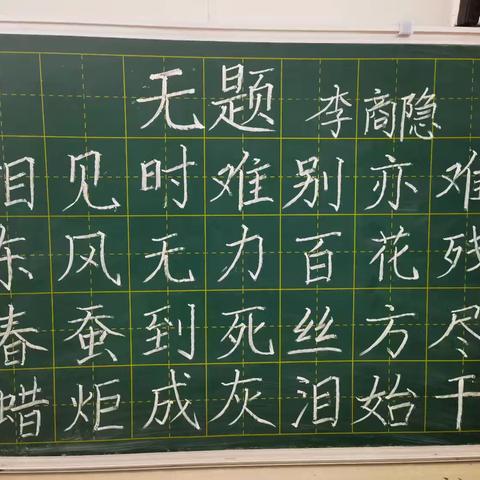 无题 李商隐
相见时难别亦难
东风无力百花残
春蚕到死丝方尽
蜡炬成灰泪始干